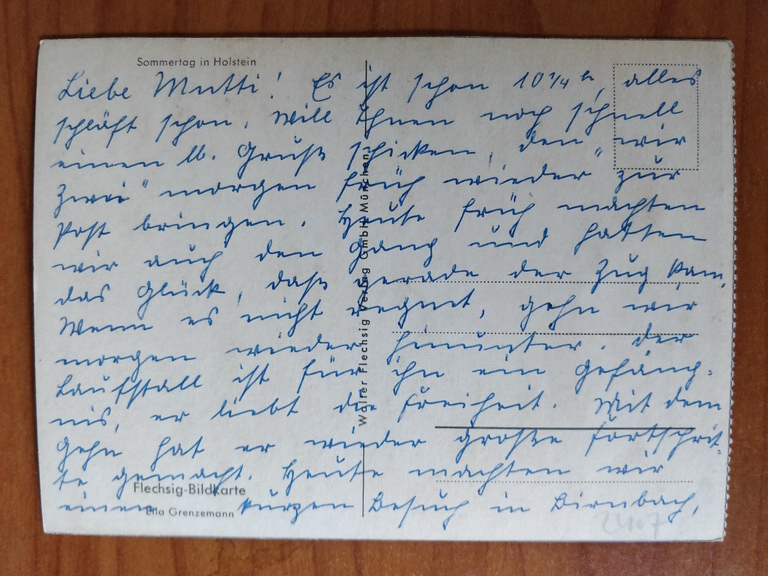 Sommertag in Holstein
Liebe Mutti! Es ist schon 10 1/4 h, alles
schläft schon, will Ihnen noch schnell
einen lb. Gruß schicken, den "wir
zwei" morgen früh wieder zur
Post bringen. Heute früh machten
wir auch den Gang und hatten
das Glück, daß gerade der Zug kam.
Wenn es nicht regnet, gehn wir
morgen wieder hinunter. Der
Laufstall ist für ihn ein Gefäng-
nis, er liebt die Freiheit. Mit dem
Gehn hat er wieder große Fortschrit-
te gemacht. Heute machten wir
einen kurzen Besuch in Birnbach,
Walter Flechsig Verlag GmbH München
Flechsig-Bildkarte
Ella Grenzemann
2407